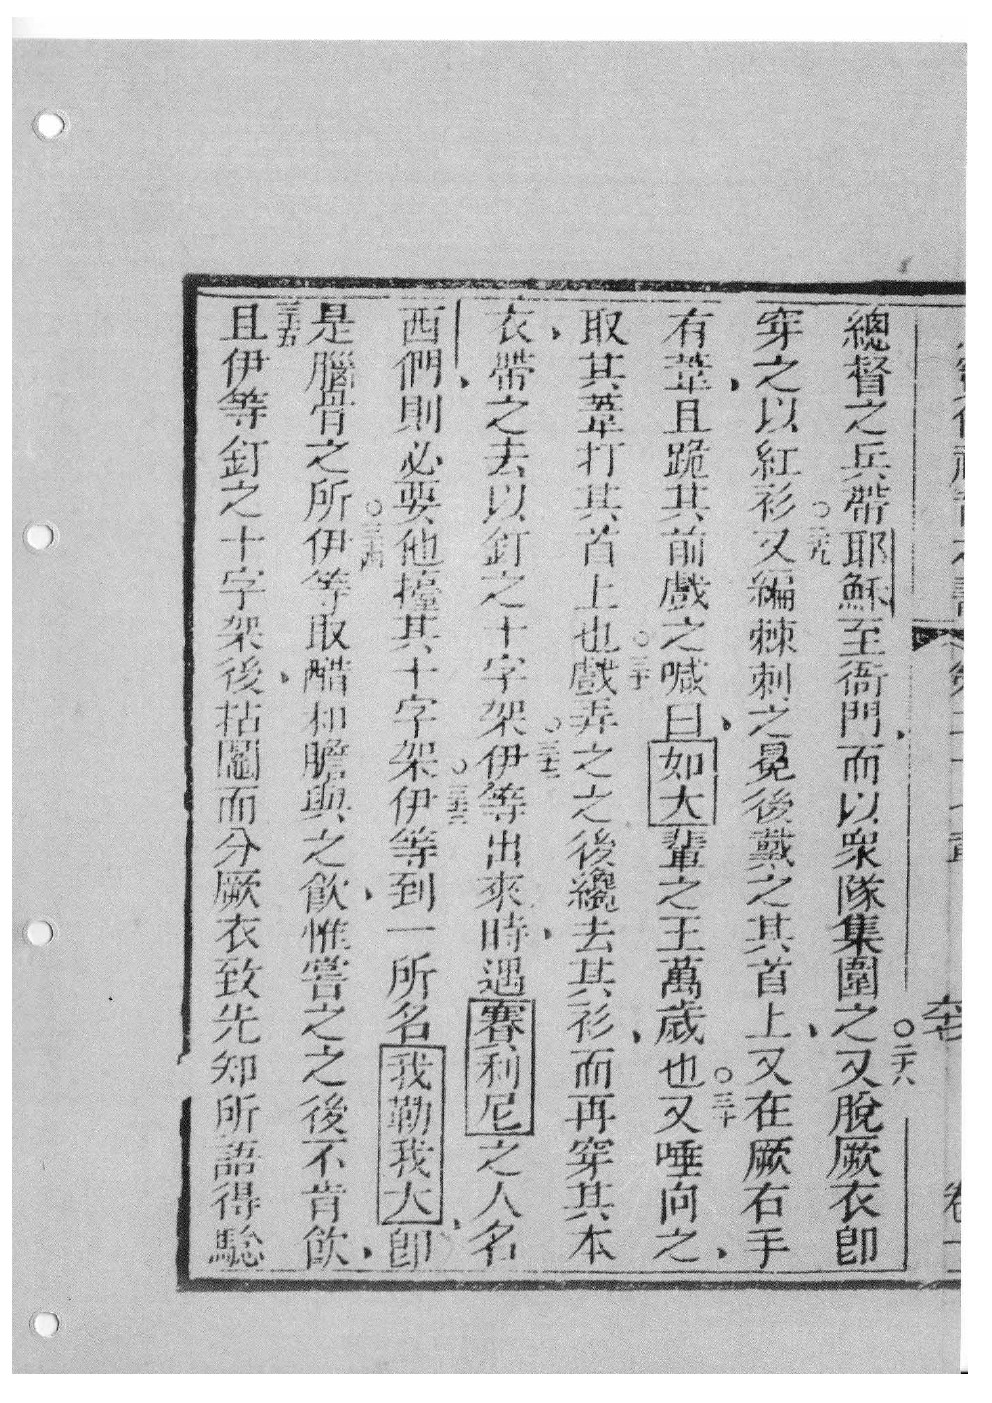 總督之兵帶耶穌至衙門而以衆隊集圍之○二十八又脫厥衣卽
穿之以紅衫○二十九又編棘刺之冕後戴之其首上又在厥右手
有葦且跪其前戲之喊曰如大輩之王萬歲也○三十又唾向之
取其葦打其首上也○三十一戲弄之之後纔去其衫而再穿其本
衣帶之去以釘之十字架○三十二伊等出來時遇賽利尼之人名
西們則必要他擡其十字架○三十三伊等到一所名我勒我大卽
是腦骨之所○三十四伊等取醋和膽與之飲惟嘗之之後不肯飲
三十五且伊等釘之十字架後拈鬮而分厥衣致先知所語得騐